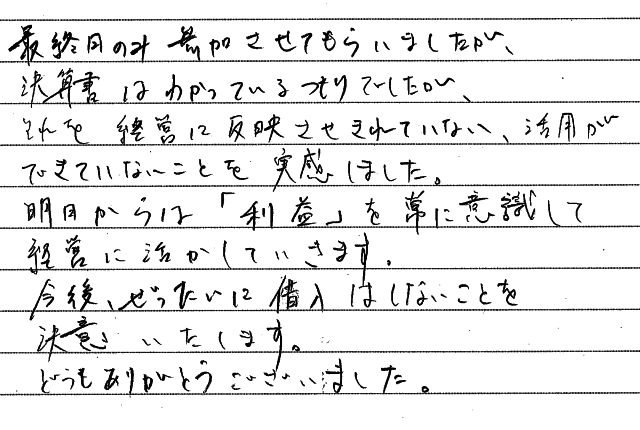 最終日のみ参加させてもらいましたが、
決算書はわかっているつもりでしたが、
それを経営に反映させきれていない、活用が
できていないことを実感しました。
明日からは「利益」を常に意識して
経営に活かしていきます。
今後、ぜったいに借入はしないことを
決意いたします。
どうもありがとうございました。